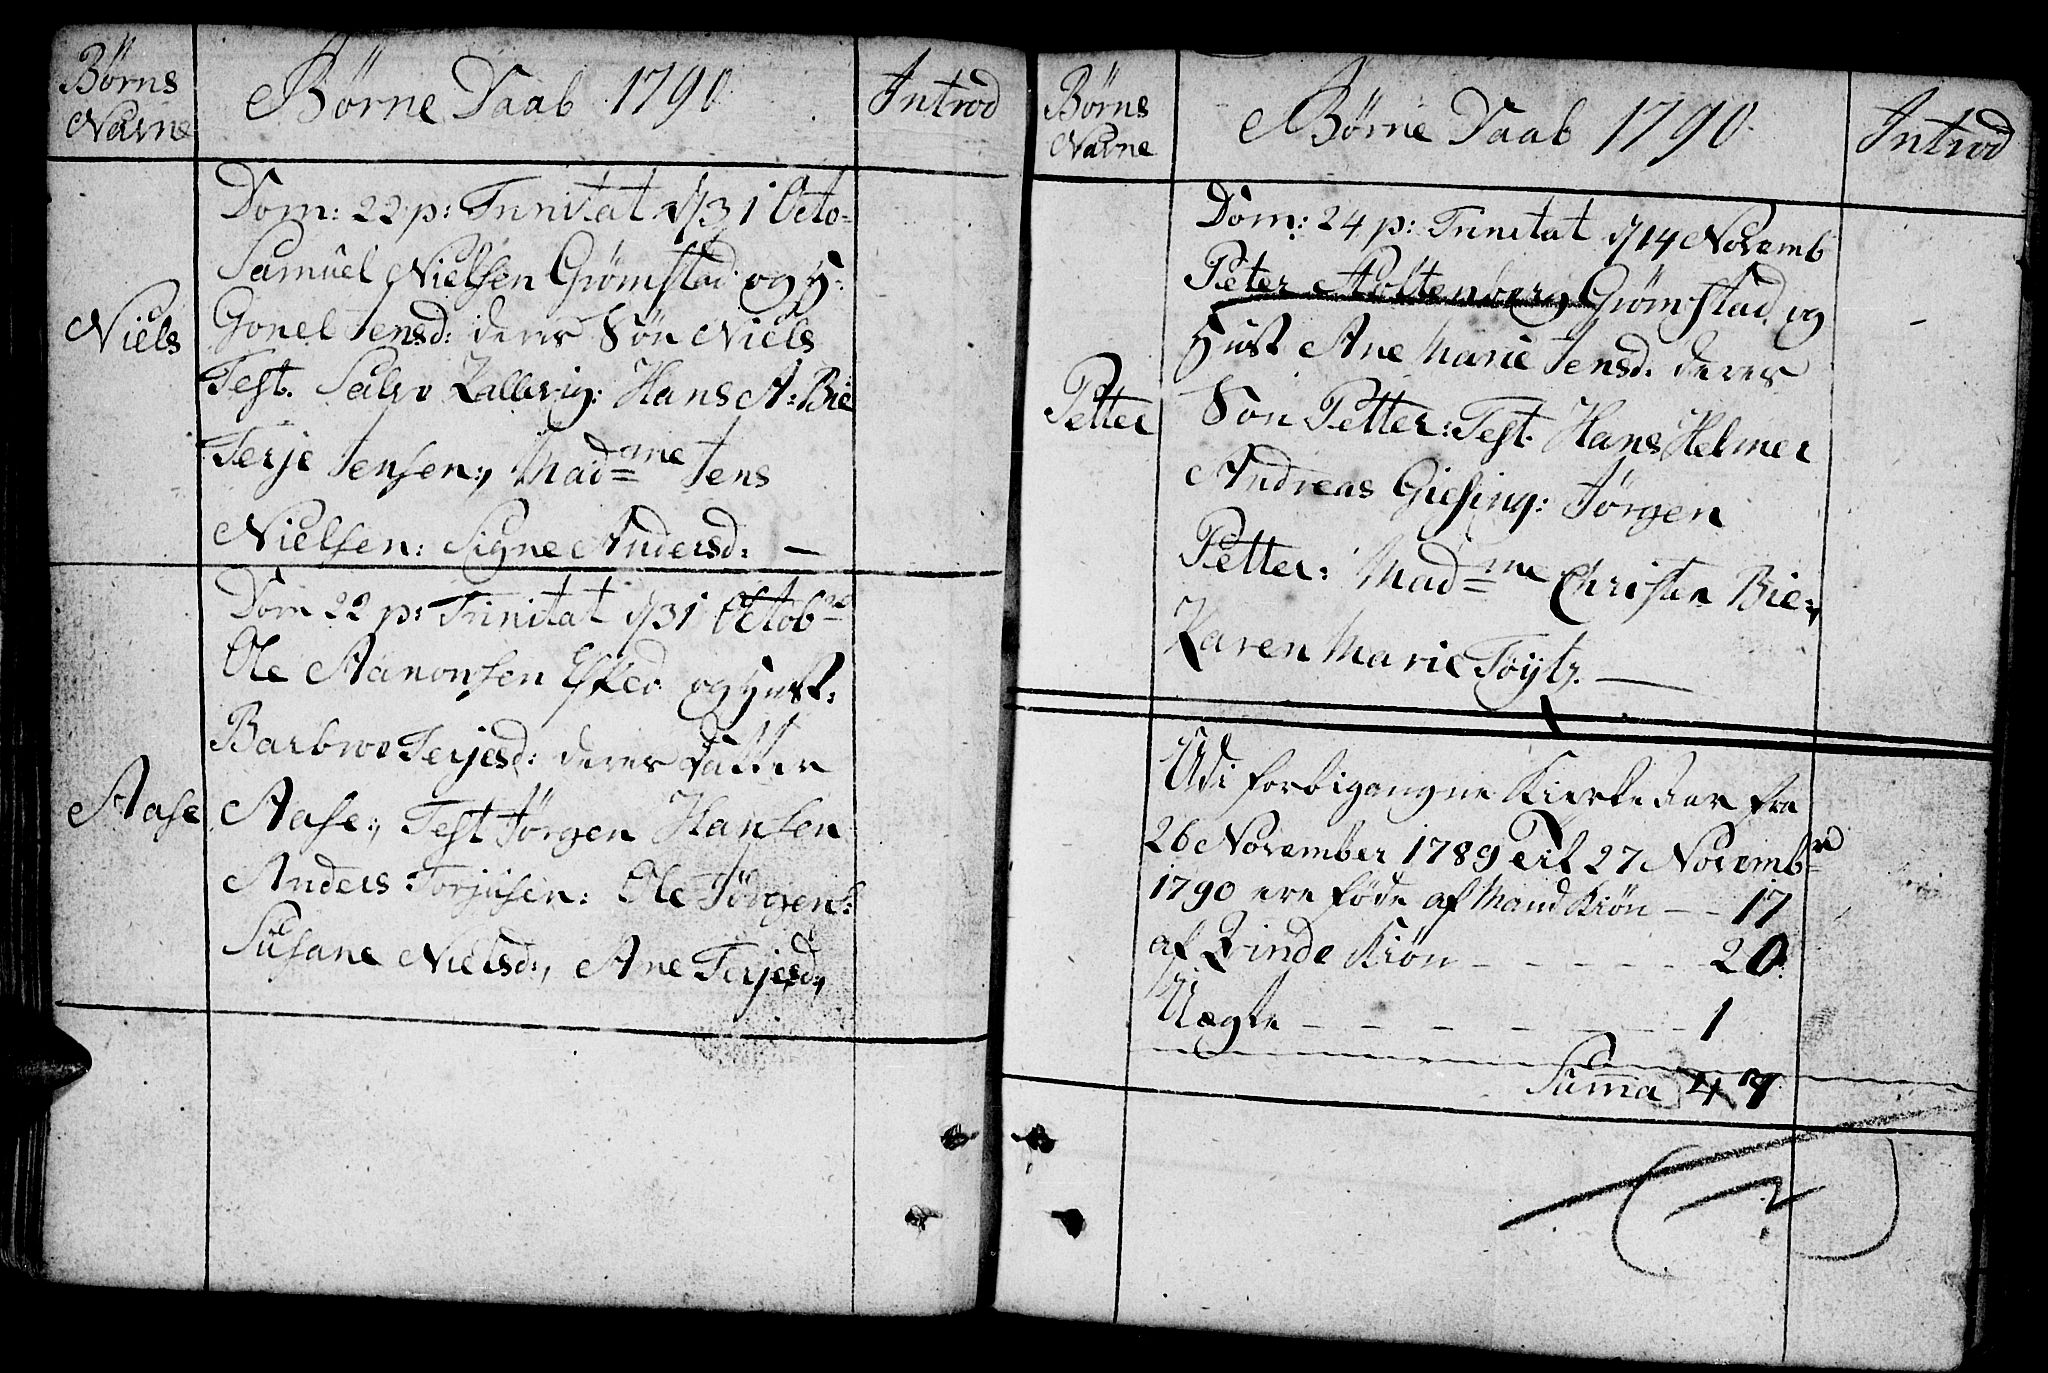 Børns
Navne
Børne Daab 1790
Introd
Dom: 22 p: Trinitat d/31 Octo-
Samuel Nielsen Grømstad og H:
Gonel Jensd: deres Søn Niels
Niels
Test. Salve Kallevig: Hans A: Bie
Terje Jensen:, Madme Jens
Nielsen: Signe Andersd: —
Dom 22 p: Trinitat d/31 Octobr
Ole Aanonsen Esked og Hust:
Barbroe Terjesd: deres Datter
Aase
Aase:, Test Jørgen Hansen
Anders Torjusen: Ole Jørgens:
Susane Nielsd:, Ane Terjesd:,
Børns
Navne
Børne Daab 1790
Introd
Dom: 24 p: Trinitat d/14 Novemb
Peter Holtenberg Grømstad og
Hust Ane Marie Jensd: deres
Petter
Søn Petter: Test. Hans Helmer
Andreas Giesing: Jørgen
Petter: Madme Christen Bie:,
Karen Marie Töyts. —
Udi forbigangne Kierke Aar fra
26 November 1789 Til 27 Novembr
1790 ere føde af Mand Kiøn — - 17
af Qvinde Kiøn - - - - - 20
Uægte - - - - - - 1
Summa 47